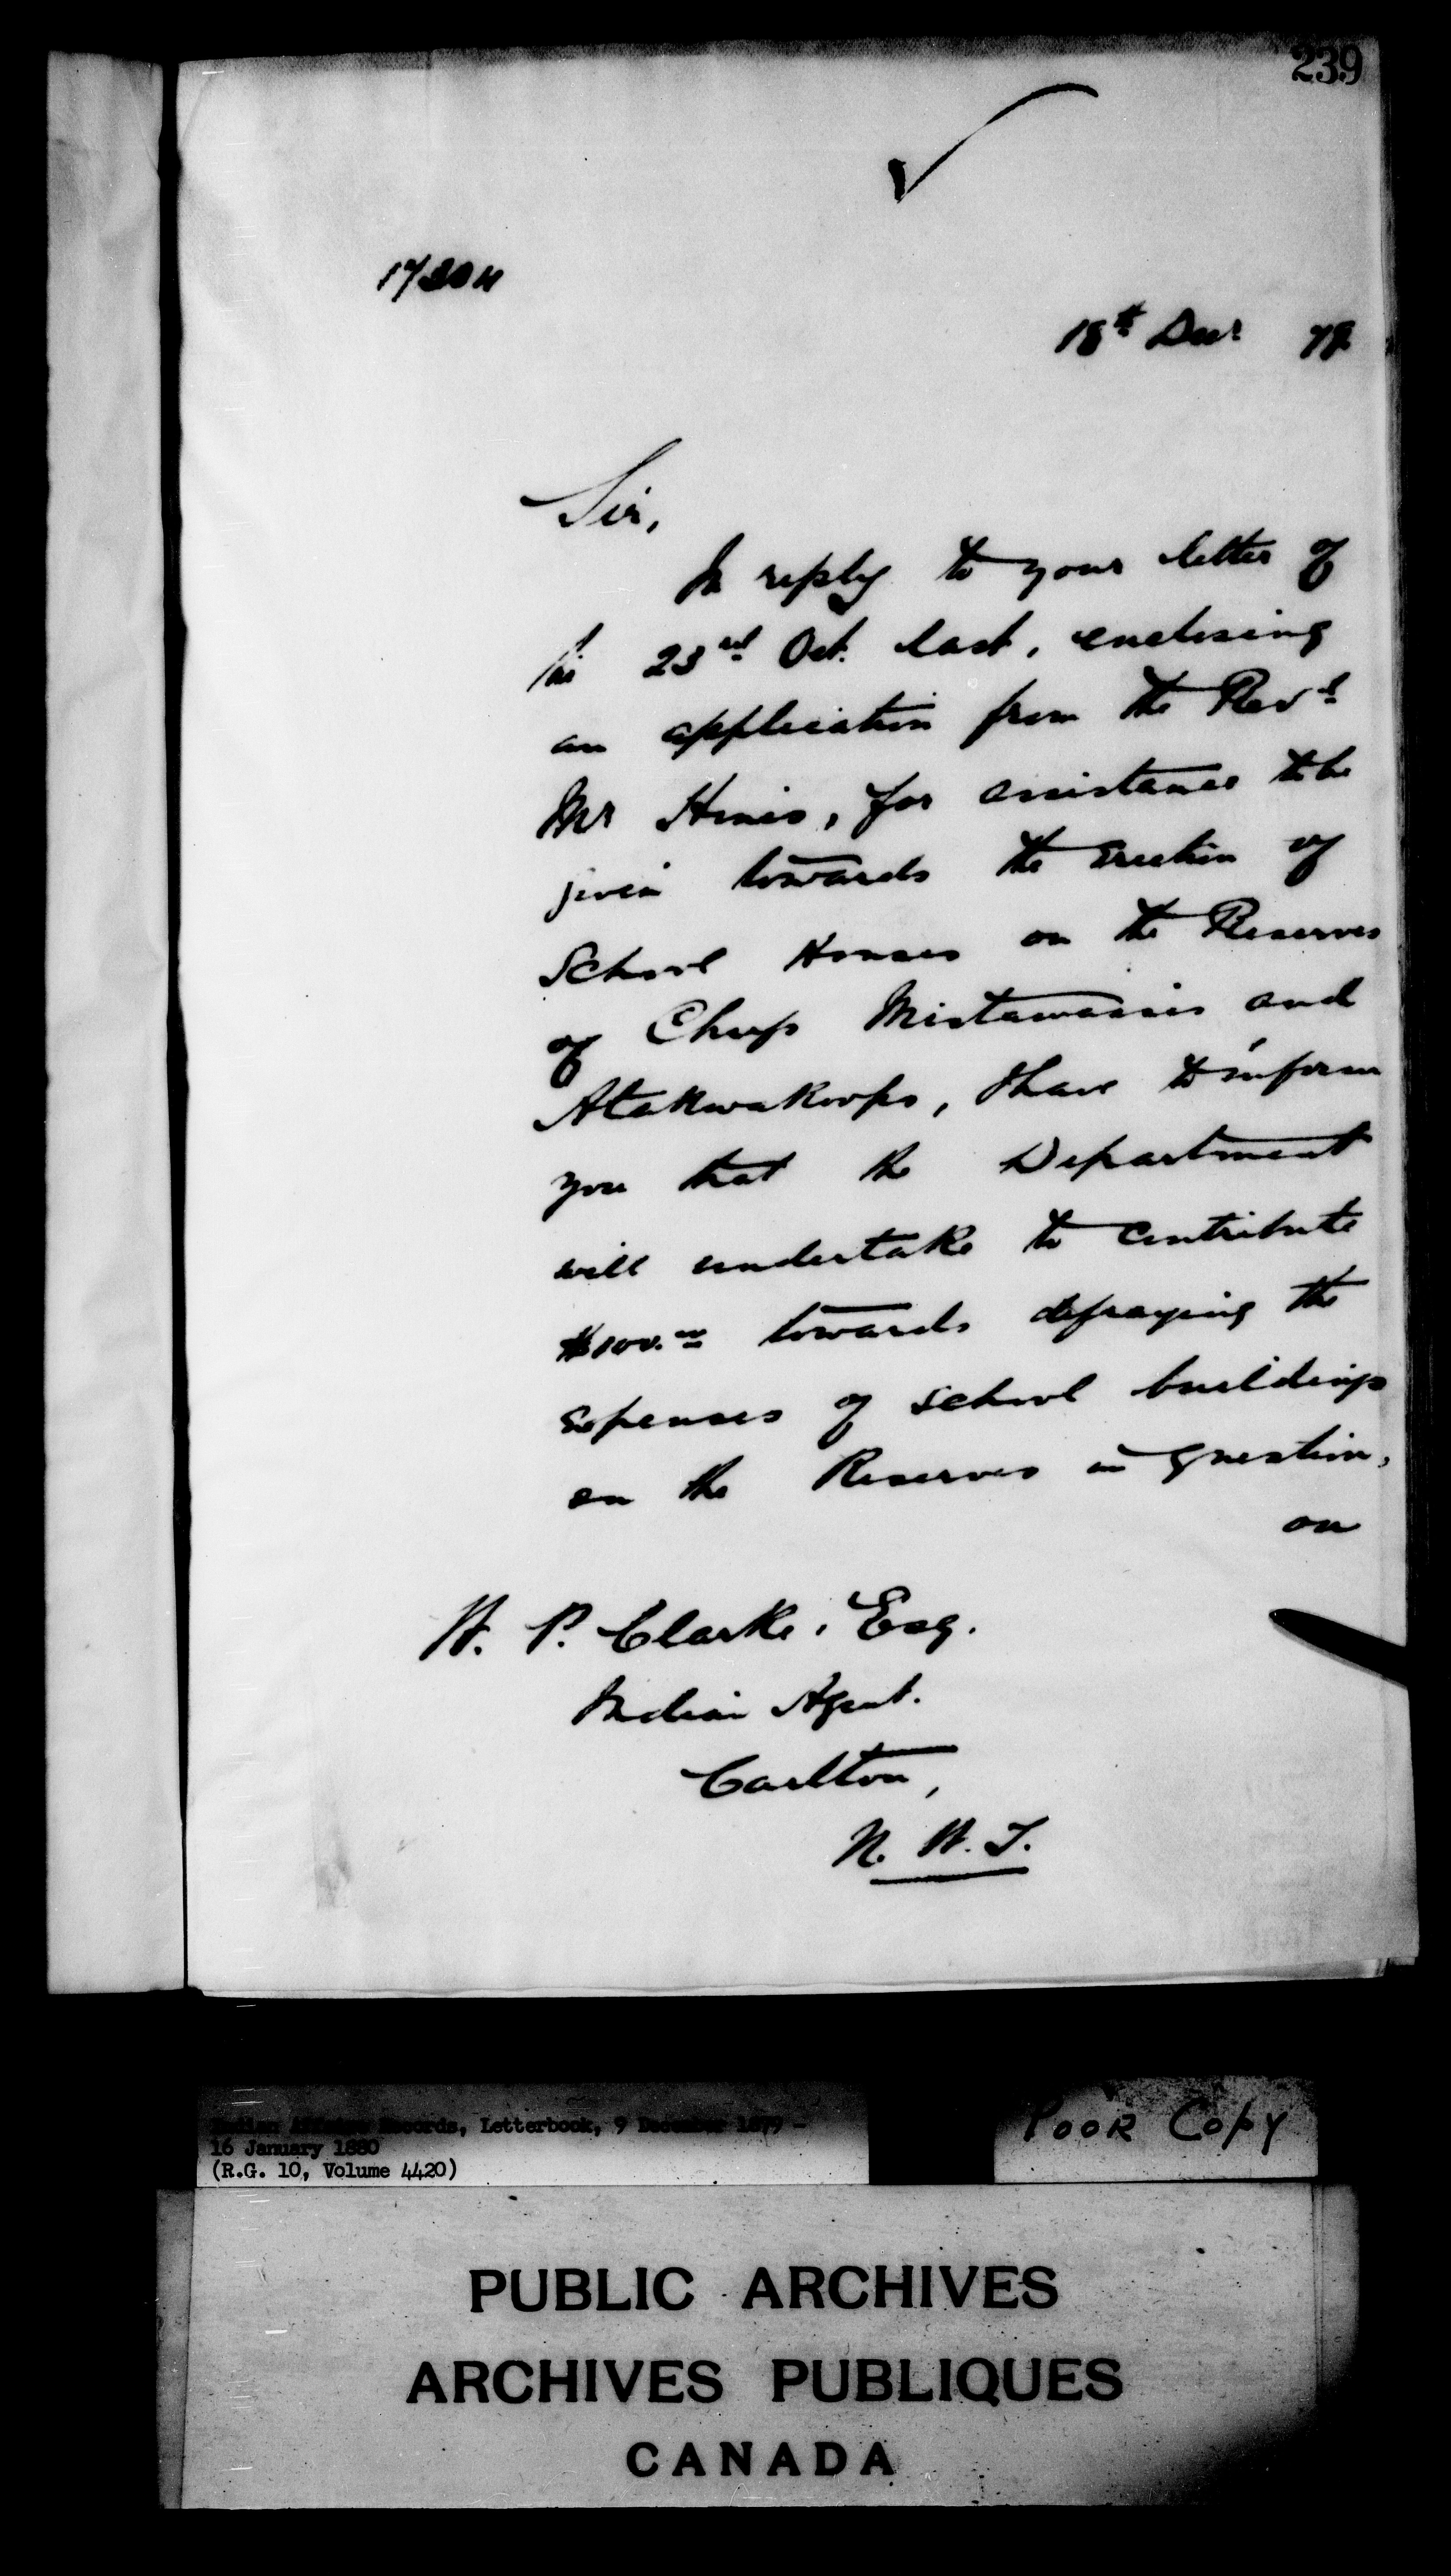 239
18th Decr 79
Sir,
In reply to your letter of
the 23rd Oct. last, enclosing
an application from the Revd
Mr Hines, for assistance to be
given towards the erection of
School Houses on the Reserves
of Chiefs Mistawassis and
Atakwakoops, I have to inform
you that the Department
will undertake to contribute
$100.00 towards defraying the
expenses of school buildings
on the Reserves in question,
on
W. P. Clarke, Esq.
Indian Agent.
Carlton,
N. W. T.
Indian Affairs Records, Letterbook, 9 December 1879 -
16 January 1880
(R.G. 10, Volume 4420)
POOR COPY
PUBLIC ARCHIVES
ARCHIVES PUBLIQUES
CANADA